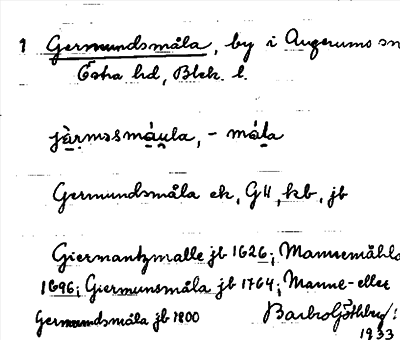 1 Germundsmåla, by i Augerums sn
Östra hd, Blek. l.
jàrmsmáula, - mála
Germundsmåla ek, GH, kb, jb
Giermantzmalle jb 1626; Mannemåhla
1696; Giermunsmåla jb 1764; Manne- eller
Germundsmåla jb 1800
Barbro Göthberg
1933